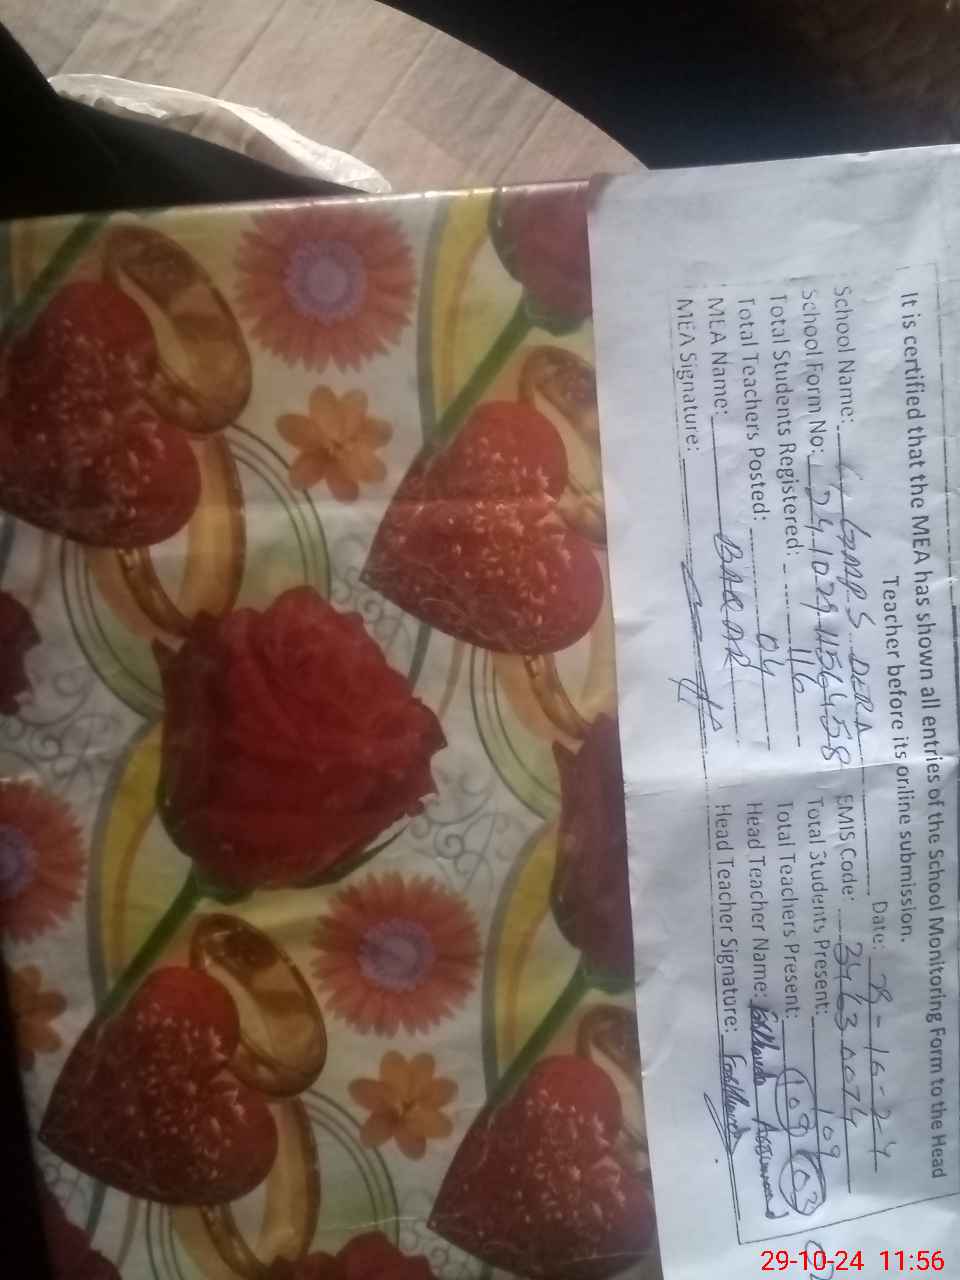 It is certified that the MEA has shown all entries of the School Monitoring Form to the Head
Teacher before its online submission.
Date:
School Name: GMPS DERA EMIS Code: 34630074
School Form No: 241029111564458 Total Students Present: 109
Total Students Registered: 116 Total Teachers Present: 109 03
Total Teachers Posted: 04 Head Teacher Name:
MLA Name: BAQAR Head Teacher Signature:
MEA Signature:
29-10-24 11:56